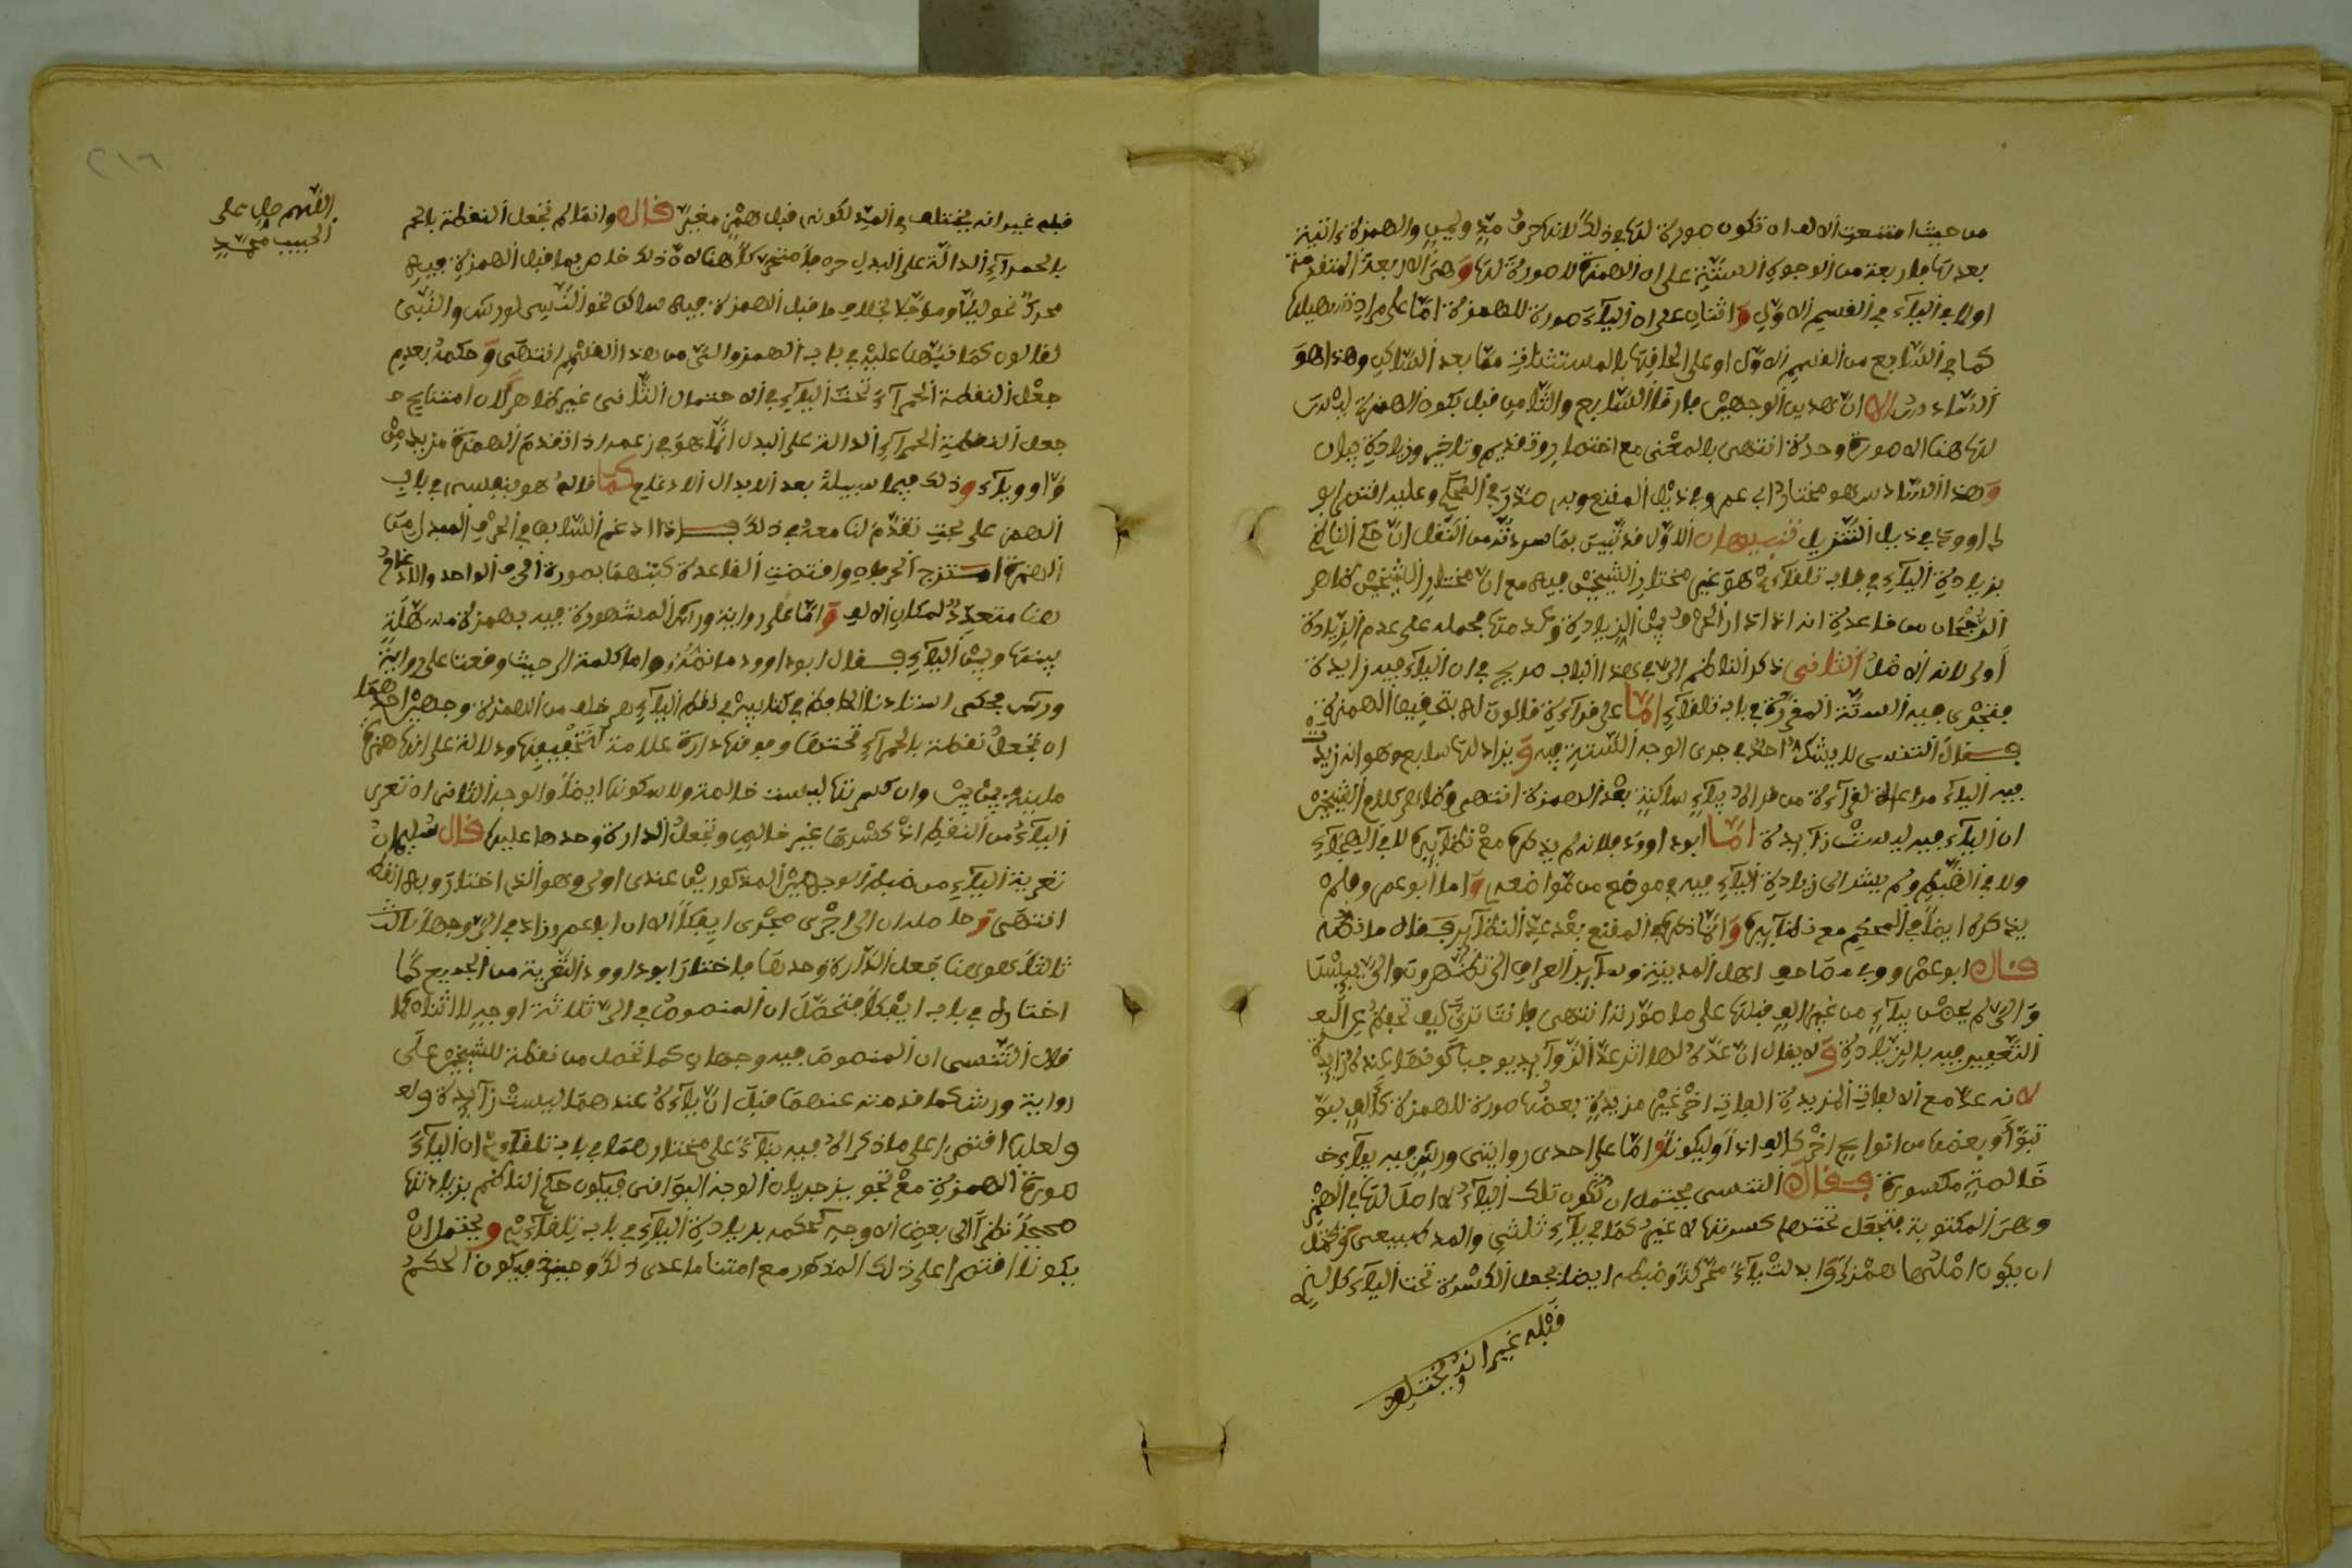 من حيث امتنعت الالف ان تكون صورة لها في ذلك لانها حرف مد ولين والهمزة اتية
بعدها فاربعة من الوجوه الستة على ان الهمزة لا صورة لها وهي الاربعة المتقدمة
اولا في الياء في القسم الاول واثنان على ان الياء صورة للهمزة اما على مراد تسهيلها
كما في السابع من القسم الاول او على الحاقها بالمستثنيات مما بعد الساكن وهذا هو
السادس الا ان هذين الوجهين فارقا السابع والثامن قبل بكون الهمزة ليس
لها هنا الا صورة وحدة انتهى بالمعنى مع اختصار وتقديم وتاخير وزيادة بيان
وهذا السادس هو مختار ابي عمرو في ذيل المقنع وبه صدر في المحكم وعليه اقتصر ابو
داوود في ذيل التنزيل تنبيهان الاول قد تبين بما سردته من النقل ان حكم الناظم
بزيادة الياء في باب تلقاءي هو غير مختار الشيخين فيه مع ان مختار الشيخين ظاهر
الرجحان من قاعدة انه اذا دار الحرف بين الزيادة وعدمها فحمله على عدم الزيادة
اولى لانه الاصل الثاني ذكر الناظم الى في هذا الباب صريح في ان الياء فيه زايدة
فتجري فيه الستة المقررة في باب تلقاءي اما على قراءة قالون له بتحقيق الهمزة
فقال التنسي لا يشك احد في جري الاوجه الستة فيه ويزاد لها سابع وهو انه زيد
فيه الياء مراعاة لقراءة من قرا الاء بياء ساكنة بعد الهمزة انتهى وظاهر كلام الشيخين
ان الياء فيه ليست زايدة اما ابو داوود فلانه لم يذكره مع نظايره لا في الهجاء
ولا في الضبط ولم يشر الى زيادة الياء فيه في موضع من مواضعه واما ابو عمرو فلم
يذكره ايضا في المحكم مع نظايره وانما ذكره في المقنع بعد عد النظاير فقال ما نصه
قال ابو عمرو وفي مصاحف اهل المدينة وساير العراق الى تظهرون والى ييسن
والى لم يحضن بياء من غير الف قبلها على ما صورته انتهى فانت ترى كيف تحفظ عن
التعبير فيه بالزيادة ولا يقال ان عده لها اثر عد الزوايد يوجب كونها عنده زايدة
لانه عد مع الالفات المزيدة الفات اخر غير مزيدة بعضها صورة للهمزة كالف
تبوا وبعضها من انواع اخر كالف اذا وليكونا واما على احدى روايتي ورش فيه بياء
خالصة مكسورة فقال التنسي يحتمل ان تكون تلك الياء لا اصل لها في الهمز
وهي المكتوبة فتجعل تحتها كسرتها لا غير كما في ياء ثلثي والمد طبيعي ويحتمل
ان يكون اصلها همزة وابدلت ياء محركة وضبطه ايضا بجعل الكسرة تحت الياء كالذي
قبله غير انه يختلف
اللهم صل على
الحبيب محمد
قبله غير انه يختلف في المد لكونه قبل همز مغير قال وانما لم تجعل النقطة بالحمر
بالحمراء الدالة على البدل حرفا متحركا هنا لان ذلك خاص بما قبل الهمزة فيه
محرك نحو ليلا وموجلا بخلاف ما قبل الهمزة فيه ساكن نحو النسي لورش والنبي
لقالون كما نبهنا عليه في باب الهمز والى من هذا القسم انتهى وحكمه بعدم
جعل النقطة الحمراء تحت الياء في الاحتمال الثاني غير ظاهر لان امتناع
جعل النقطة الحمراء الدالة على البدل انما هو في زعمه اذا تقدم الهمزة مزيد من
واو وياء وذلك فيما سبيله بعد الابدال الادغام كما قاله هو بنفسه في باب
الهمز على بحث تقدم لنا معه في ذلك فاذا ادغم السابق في الحرف المبدل من
الهمزة امتزج الحرفان واقتضت القاعدة كتبهما بصورة الحرف الواحد والادغام
هنا متعذر لمكان الالف واما على رواية ورش المشهورة فيه بهمزة مسهلة
بينها وبين الياء فقال ابو داوود ما نصه واما كلمة الى حيث وقعت على رواية
ورش فحكى استاذنا الحافظ في كتابه في نقط الياء هي خلف من الهمزة وجهين احدهما
ان تجعل نقطة بالحمراء تحتها وفوقها دارة علامة لتخفيفها ودلالة على انها همزة
ملينة بين بين وان كسرتها ليست خالصة ولا سكونها ايضا والوجه الثاني ان تعرى
الياء من النقط اذ كسرتها غير خالص وتجعل الدارة وحدها عليها قال سليمان
تعرية الياء من ضبط الوجهين المذكورين عندي اولى وهو الذي اختار وبه انقط
انتهى وحاصله ان الى اجرى مجرى ايفكا الا ان ابا عمرو زاد في الى وجها ثالثا
ثالثا هو هنا جعل الدارة وحدها فاختار ابو داوود التعرية من الجميع كما
اختاره في باب ايفكا فتحصل ان المنصوص في الى ثلاثة اوجه لا اثنان كما
قال التنسي ان المنصوص فيه وجهان كما تحصل من نقطة للشيخين على
رواية ورش كما قدمته عنهما قبل ان ياءه عندهما ليست زايدة ولعـ
ولعلها اقتصرا على ما ذكرا لا فيه بناء على مختارهما في باب تلقاءي ان الياء
صورة الهمزة مع تجويز جريان الاوجه البواقي فيكون حكم الناظم بزيادتها
صحيحا نظرا الى بعض الاوجه كحكمه بزيادة الياء في باب تلقاءي ويحتمل ان
يكونا اقتصرا على ذلك المذكور مع امتناع ما عدى ذلك وحينئذ فيكون الحكم